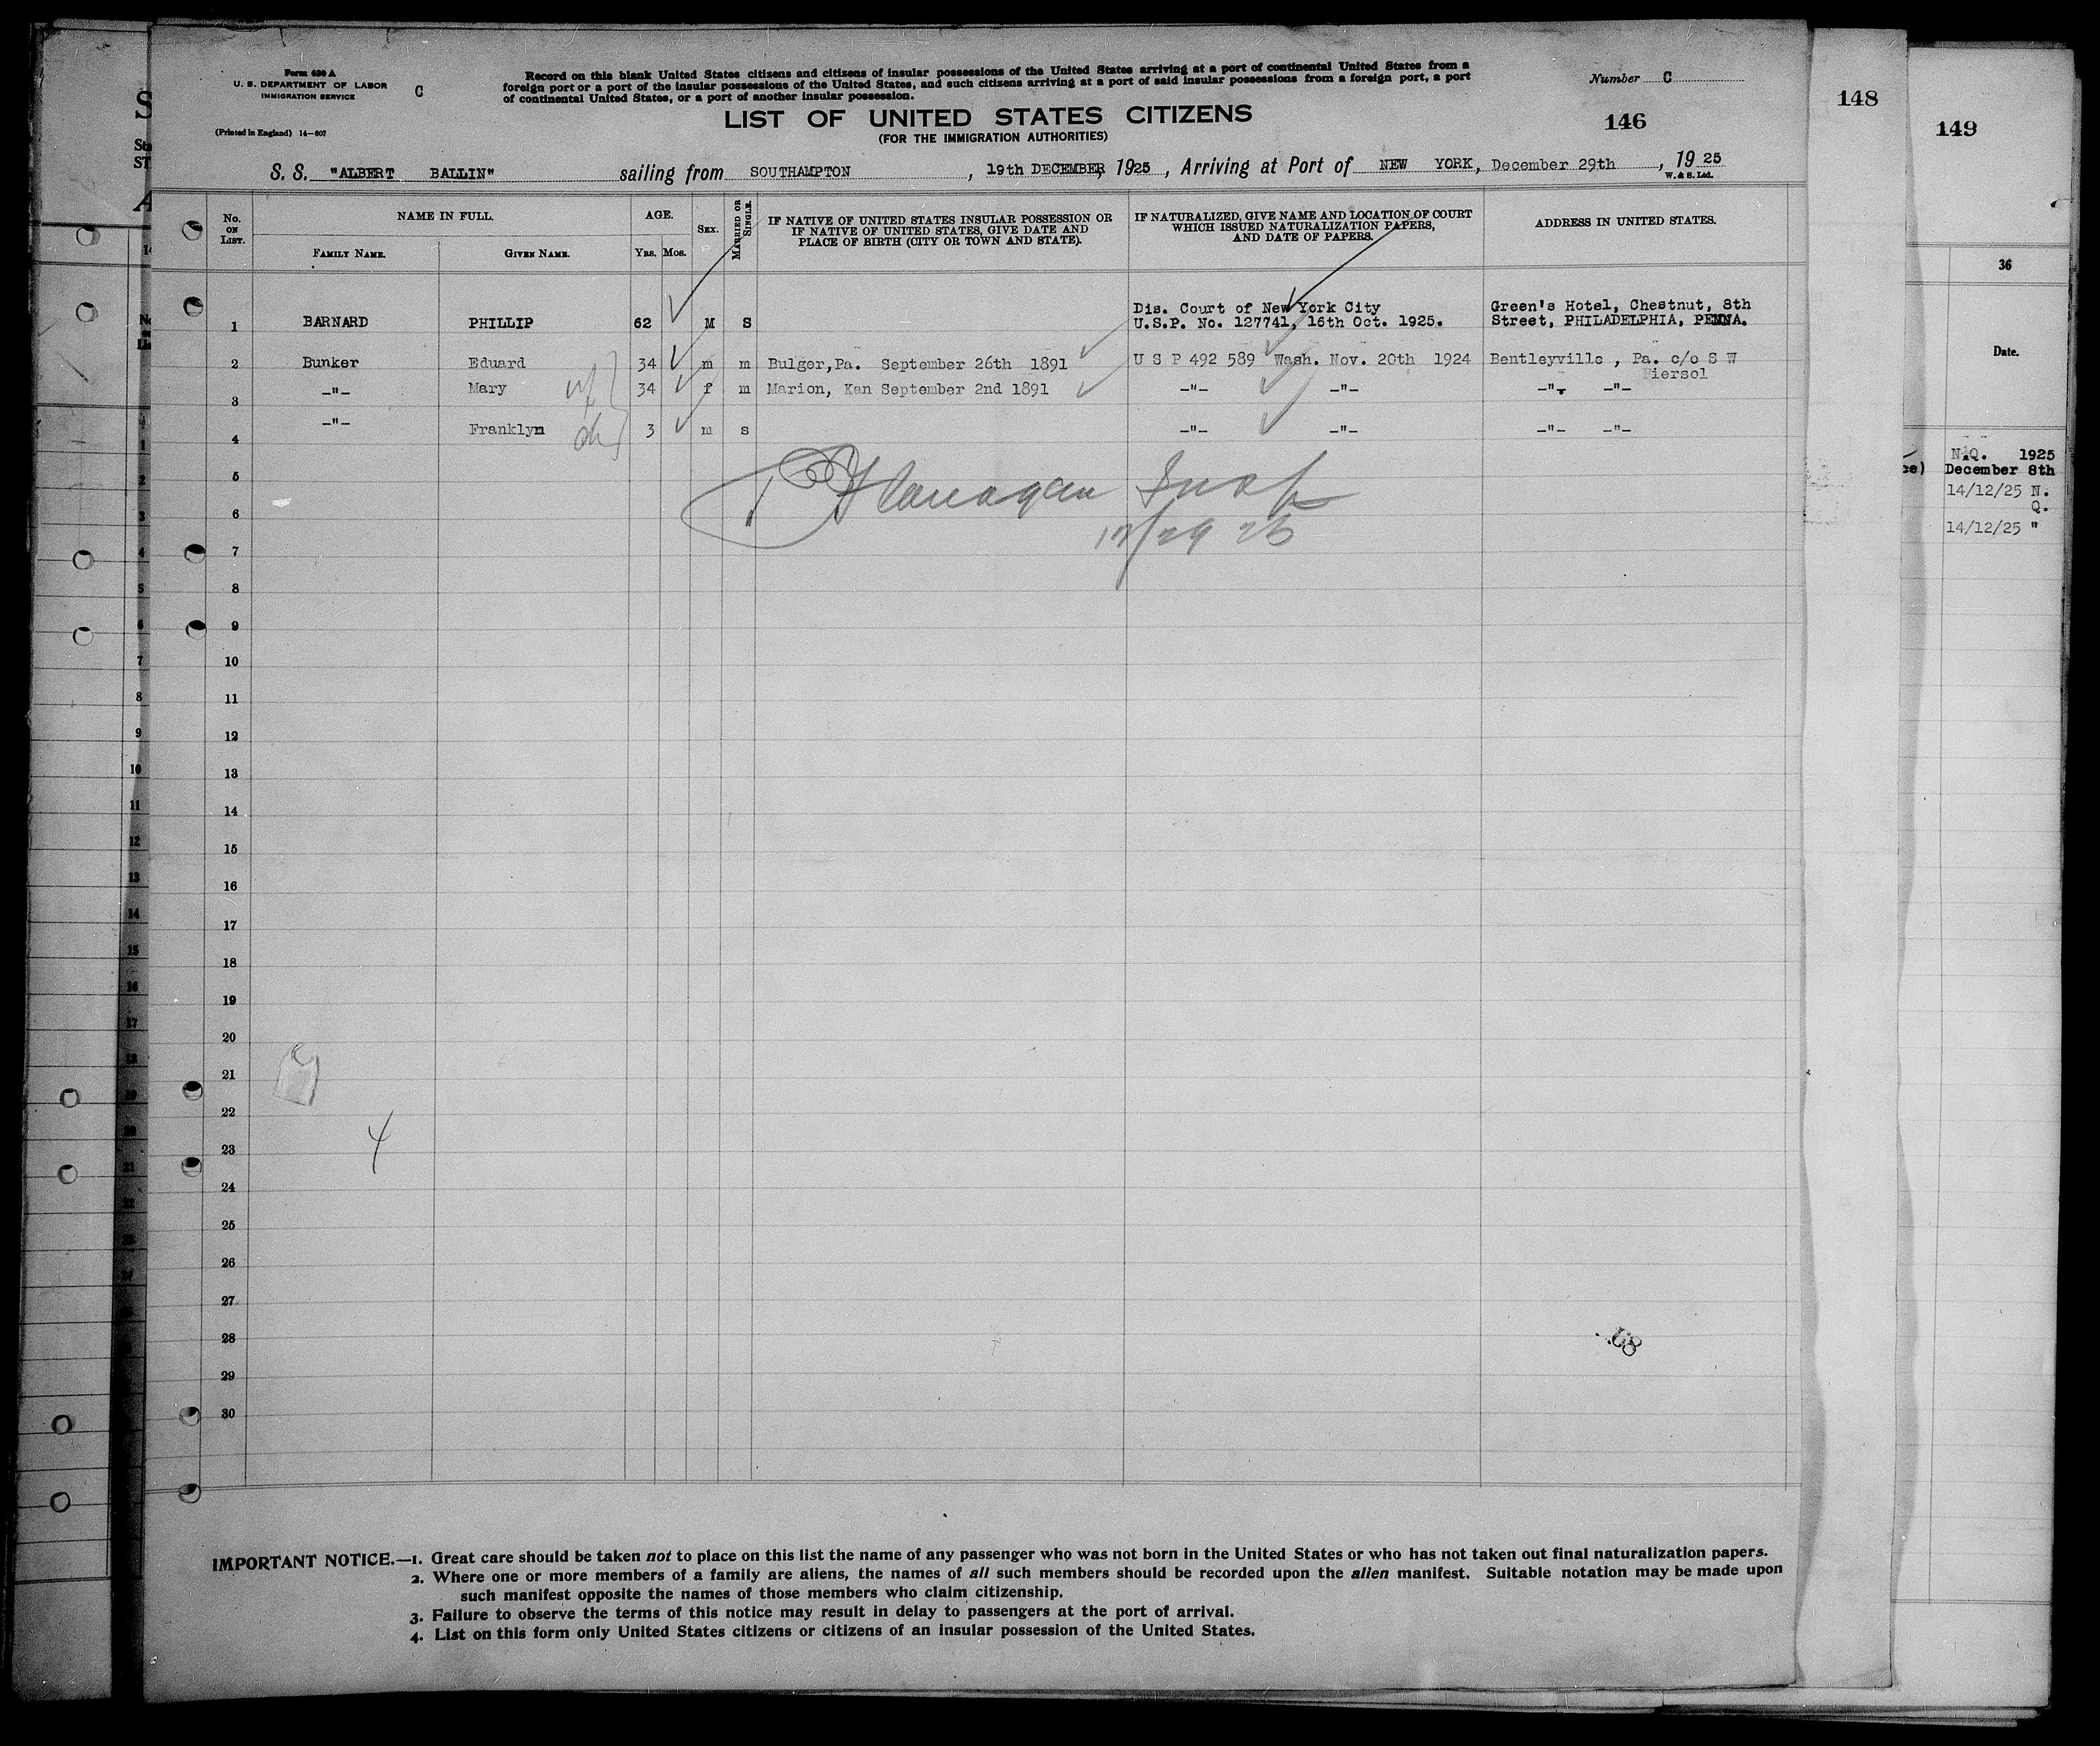 Form 630 A
U. S. DEPARTMENT OF LABOR
IMMIGRATION SERVICE
C
(Printed in England) 14—607
Record on this blank United States citizens and citizens of insular possessions of the United States arriving at a port of continental United States from a
foreign port or a port of the insular possessions of the United States, and such citizens arriving at a port of said insular possessions from a foreign port, a port
of continental United States, or a port of another insular possession.
Number C
LIST OF UNITED STATES CITIZENS
(FOR THE IMMIGRATION AUTHORITIES)
146
S. S. "ALBERT BALLIN" sailing from SOUTHAMPTON, 19th DECEMBER, 1925, Arriving at Port of NEW YORK, December 29th, 1925
W. & S. Ltd.
No. ON LIST.
NAME IN FULL.
FAMILY NAME.
GIVEN NAME.
AGE.
YRS. MOS.
SEX.
MARRIED OR SINGLE.
IF NATIVE OF UNITED STATES INSULAR POSSESSION OR
IF NATIVE OF UNITED STATES, GIVE DATE AND
PLACE OF BIRTH (CITY OR TOWN AND STATE).
IF NATURALIZED, GIVE NAME AND LOCATION OF COURT
WHICH ISSUED NATURALIZATION PAPERS,
AND DATE OF PAPERS.
ADDRESS IN UNITED STATES.
Dis. Court of New York City Green's Hotel, Chestnut, 8th
1 BARNARD PHILLIP 62 M S U.S.P. No. 127741, 16th Oct. 1925. Street, PHILADELPHIA, PENNA.
2 Bunker Eduard 34 m m Bulger,Pa. September 26th 1891 U S P 492 589 Wash. Nov. 20th 1924 Bentleyville , Pa. c/o S W
Piersol
3 -"- Mary wf 34 f m Marion, Kan September 2nd 1891 -"- -"- -"- -"-
4 -"- Franklyn ch 3 m s -"- -"- -"- -"-
5
Flanagan Insp
6
12/29 25
7
8
9
10
11
12
13
14
15
16
17
18
19
20
21
22
4
23
24
25
26
27
28
29
30
IMPORTANT NOTICE.—1. Great care should be taken not to place on this list the name of any passenger who was not born in the United States or who has not taken out final naturalization papers.
2. Where one or more members of a family are aliens, the names of all such members should be recorded upon the alien manifest. Suitable notation may be made upon
such manifest opposite the names of those members who claim citizenship.
3. Failure to observe the terms of this notice may result in delay to passengers at the port of arrival.
4. List on this form only United States citizens or citizens of an insular possession of the United States.
148
149
36
Date.
N.Q. 1925
December 8th
14/12/25 N.
Q.
14/12/25 "